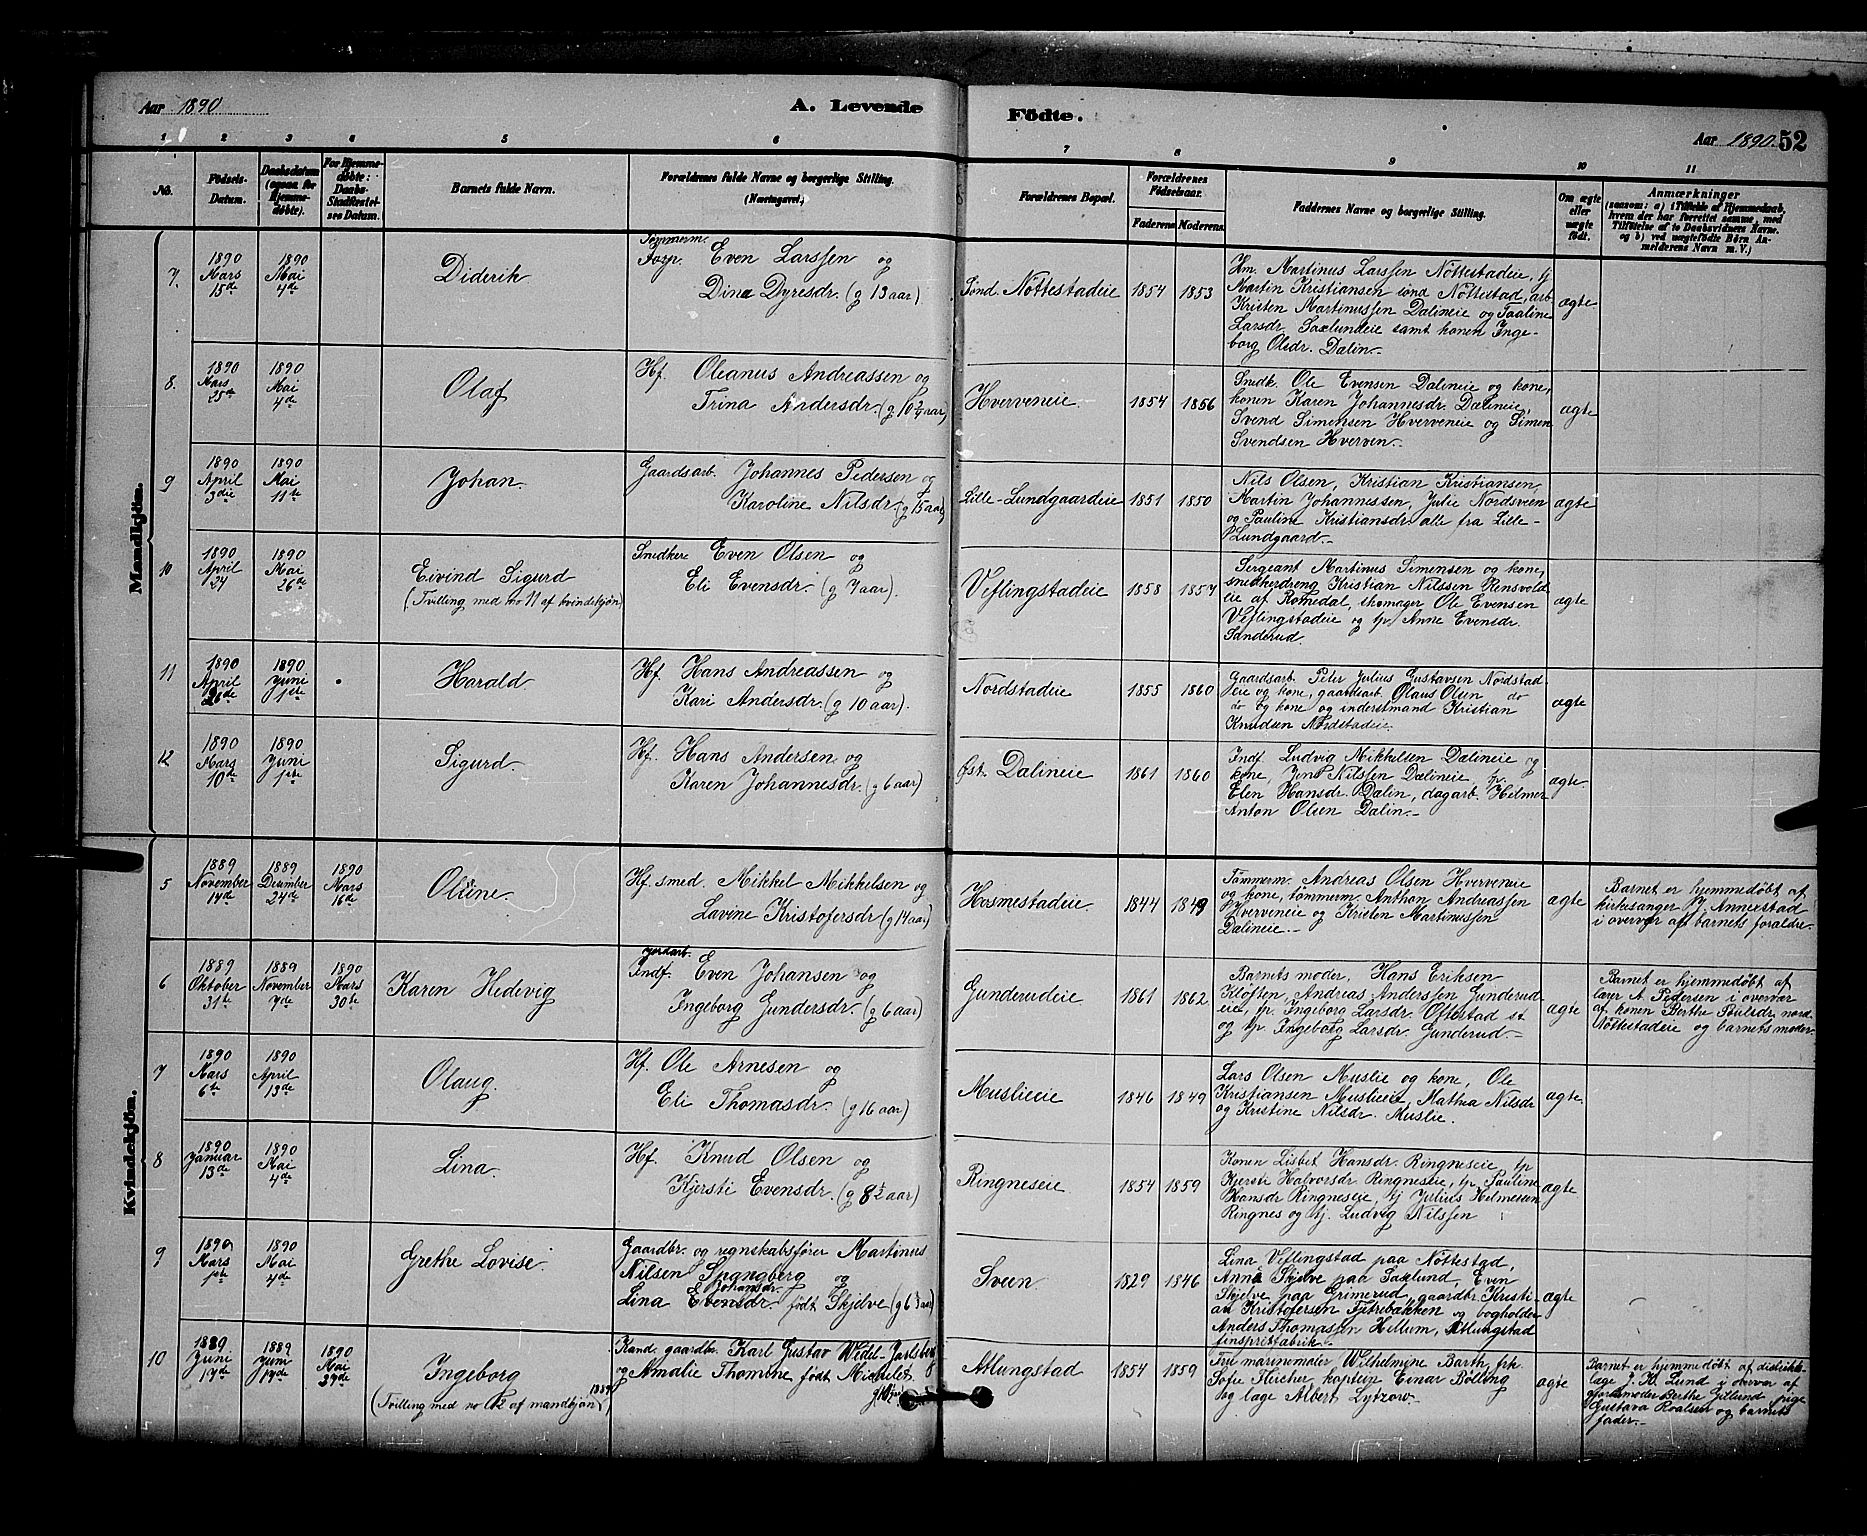 Aar 1890
A. Levende
Födte.
Aar 1890. 52
1 2 3 4 5 6 7 8 9 10 11
No.
Födsels-
Datum.
Daabsdatum
(ogsaa for
Hjemme-
døbte).
For Hjemme-
døbte:
Daabs-
Stadfæstel-
ses Datum.
Barnets fulde Navn.
Forældrenes fulde Navne og borgerlige Stilling.
(Næringsvei.)
Forældrenes Bopæl.
Forældrenes
Födselsaar.
Faderens Moderens
Faddernes Navne og borgerlige Stilling.
Om ægte
eller
uægte
født.
Anmærkninger
(saasom: a) i Tilfælde af Hjemmedaab,
hvem der har forrettet samme, med
Tilføielse af to Daabsvidners Navne.
og b) ved uægtefødte Børn An-
melderens Navn m. V.)
Mandkjön.
7.
1890
Mars
15de
1890
Mai
4de
Diderik
Tømmerm.
Forp. Even Larssen og
Dina Dyresdr. (g 13 aar)
Sønd. Nøttestadeie
1854 1853
Hm. Martinus Larssen Nøttestadeie, tj
Martin Kristiansen sønd Nøttestad, arb
Kristen Martinussen Dalineie og Paaline
Larsdr. Saxlundeie samt konen Inge-
borg Olsdr. Dalin.
ægte
8.
1890
Mars
25de
1890
Mai
4de
Olaf
Hf. Oleanus Andreassen og
Trina Andersdr. (g 10 aar)
Hverveneie.
1854 1856
Snedk. Ole Evensen Dalineie og kone,
konen Karen Johannesdr. Dalineie,
Svend Simensen Hverveneie og Simen
Svendsen Hverven.
ægte
9
1890
April
3die
1890
Mai
11te
Johan.
Gaardsarb. Johannes Pedersen og
Karoline Nilsdr. (g 15 aar)
Lille-Lundgaardeie
1851 1850
Nils Olsen, Kristian Kristiansen,
Martin Johannessen, Julie Nordsveen
og Pauline Kristiansdr. alle fra Lille-
Lundgaard.
ægte
10
1890
April
24
1890
Mai
26de
Eivind Sigurd
(Tvilling med no 11 af kvindekjøn)
Snedkere Even Olsen og
Eli Evensdr. (g 7 aar).
Veflingstadeie
1858 1857
Sergeant Martinus Simensen og kone,
snekkerdreng Kristian Nilssen Rensvold-
eie af Romedal, skomager Ole Evensen
Veflingstadeie og tp. Anne Evensdr.
Sanderud.
ægte
11
1890
April
26de
1890
Juni
1ste
Harald.
Hf. Hans Andreassen og
Kari Andersdr. (g 10 aar).
Nordstadeie
1855 1860
Gaardsarb. Peter Julius Gustavsen Nordstad-
eie og kone, gaardsarb. Olaus Olsen do
do og kone og inderstmand Kristian
Knudsen Nordstadeie.
ægte
12
1890
Mars
10de
1890
Juni
1ste
Sigurd.
Hf. Hans Andersen og
Karen Johannesdr. (g 6 aar)
Øst. Dalineie
1861 1860
Indf. Ludvig Mikkelsen Dalineie og
kone, Jens Nilssen Dalineie, tp.
Elen Hansdr. Dalin, dagarb. Helmer
Anton Olsen Dalin.
ægte.
Kvindekjön.
5
1889
November
14de
1889
December
24de
1890
Mars
16de
Oline.
Hf. smed. Mikkel Mikkelsen og
Lavine Kristofersdr. (g 14 aar)
Hosmestadeie
1844 1849
Tømmerm Andreas Olsen Hverveneie
og kone, tømmerm. Anthon Andreassen
Hverveneie og Kristen Martinussen
Dalineie.
ægte
Barnet er hjemmedøbt af
kirkesanger Hj. Annestad
i overvær aft barnets forældre.
6
1889
Oktober
31te
1889
November
7de
1890
Mars
30te
Karen Hedevig
jordarb.
Indf. Even Johansen og
Ingeborg Gundersdr. (g 6 aar)
Gunderudeie
1861 1862
Barnets moder, Hans Eriksen
Kløften, Andreas Anderssen Gunderud-
eie, tp. Ingeborg Larsdr. Oftestad st
og tp. Ingeborg Larsdr. Gunderud.
ægte
Barnet er hjemmedøbt af
lærer A Pedersen i overvær
af konen Berthe Poulsdr. nord.
Nøttestadeie og barnets moder.
7
1890
Mars
6te
1890
April
13de
Olaug.
Hf. Ole Arnesen og
Eli Thomasdr. (g 16 aar)
Muslieie
1846 1849
Lars Olsen Muslie og kone, Ole
Kristiansen Muslieie, Mathea Nilsdr
og Kristine Nilsdr. Muslie.
ægte.
8
1890
Januar
13de
1890
Mai
4de
Lina.
Hf. Knud Olsen og
Kjersti Evensdr. (g 8 1/2 aar)
Ringneseie
1854 1859
Konen Lisbet Hansdr. Ringneseie, tp
Kjersti Halvorsdr Ringneseie, tp. Pauline
Hansdr Ringneseie, tj Julius Helmersen
Ringnes og tj. Ludvig Nilssen
ægte
9
1890
Mars
1ste
1890
Mai
4de
Grethe Lovise.
Gaardbr. og regnskabsfører Martinus
Nilsen Spangberg og
Johansdr.
Lina Evensdr. født Skjelve (g 6 aar)
Sveen.
1829 1846
Lina Veflingstad paa Nøttestad,
Anna Skjelve paa Saxlund, Even
Skjelve paa Grimerud, gaardbr. Kristi-
an Kristofersen Fitrebakken og bogholder
Anders Thomassen Hellum, Atlungstad
finspritfabrik.
ægte
10
1889
Juni
17de
1889
Juni
17de
1890
Mai
27de
Ingeborg
1889
(Tvilling med no 12 af mandkjøn)
Kand. gaardbr. Karl Gustav Wedel-Jarlsberg
og Amalie Thomine født Michelet
Atlungstad
1854 1859
Fru marinemaler Wilhelmine Barth, frk.
Sofie Fleicher, kaptein Einar Bølling
og læge Albert Lytzow.
ægte
Barnet er hjemmedøbt af distrikts-
læge J. Kr. Lund i overvær af
jordemoder Berthe Gillund, pige
Gustava Roalsen og barnets
fader.